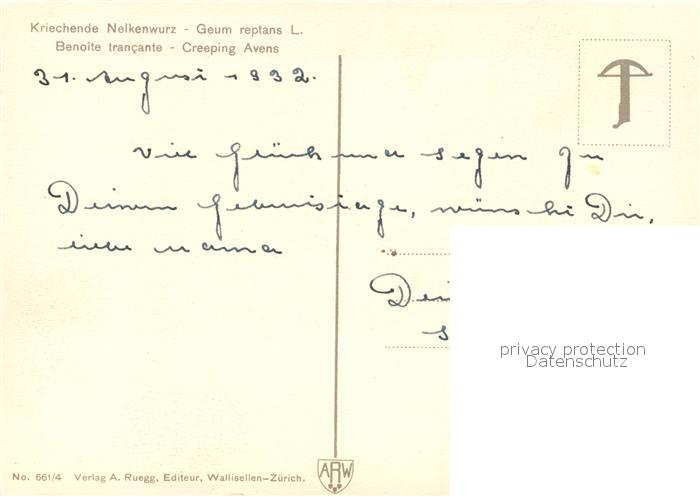 Kriechende Nelkenwurz - Geum reptans L.
Benoîte trançante - Creeping Avens
31. August 1932.
Viel Glück und Segen zu
Deinem Geburtstage, wünscht Dir,
liebe Mama
privacy protection
Datenschutz
ARW
No. 661/4 Verlag A. Ruegg, Editeur, Wallisellen-Zürich.